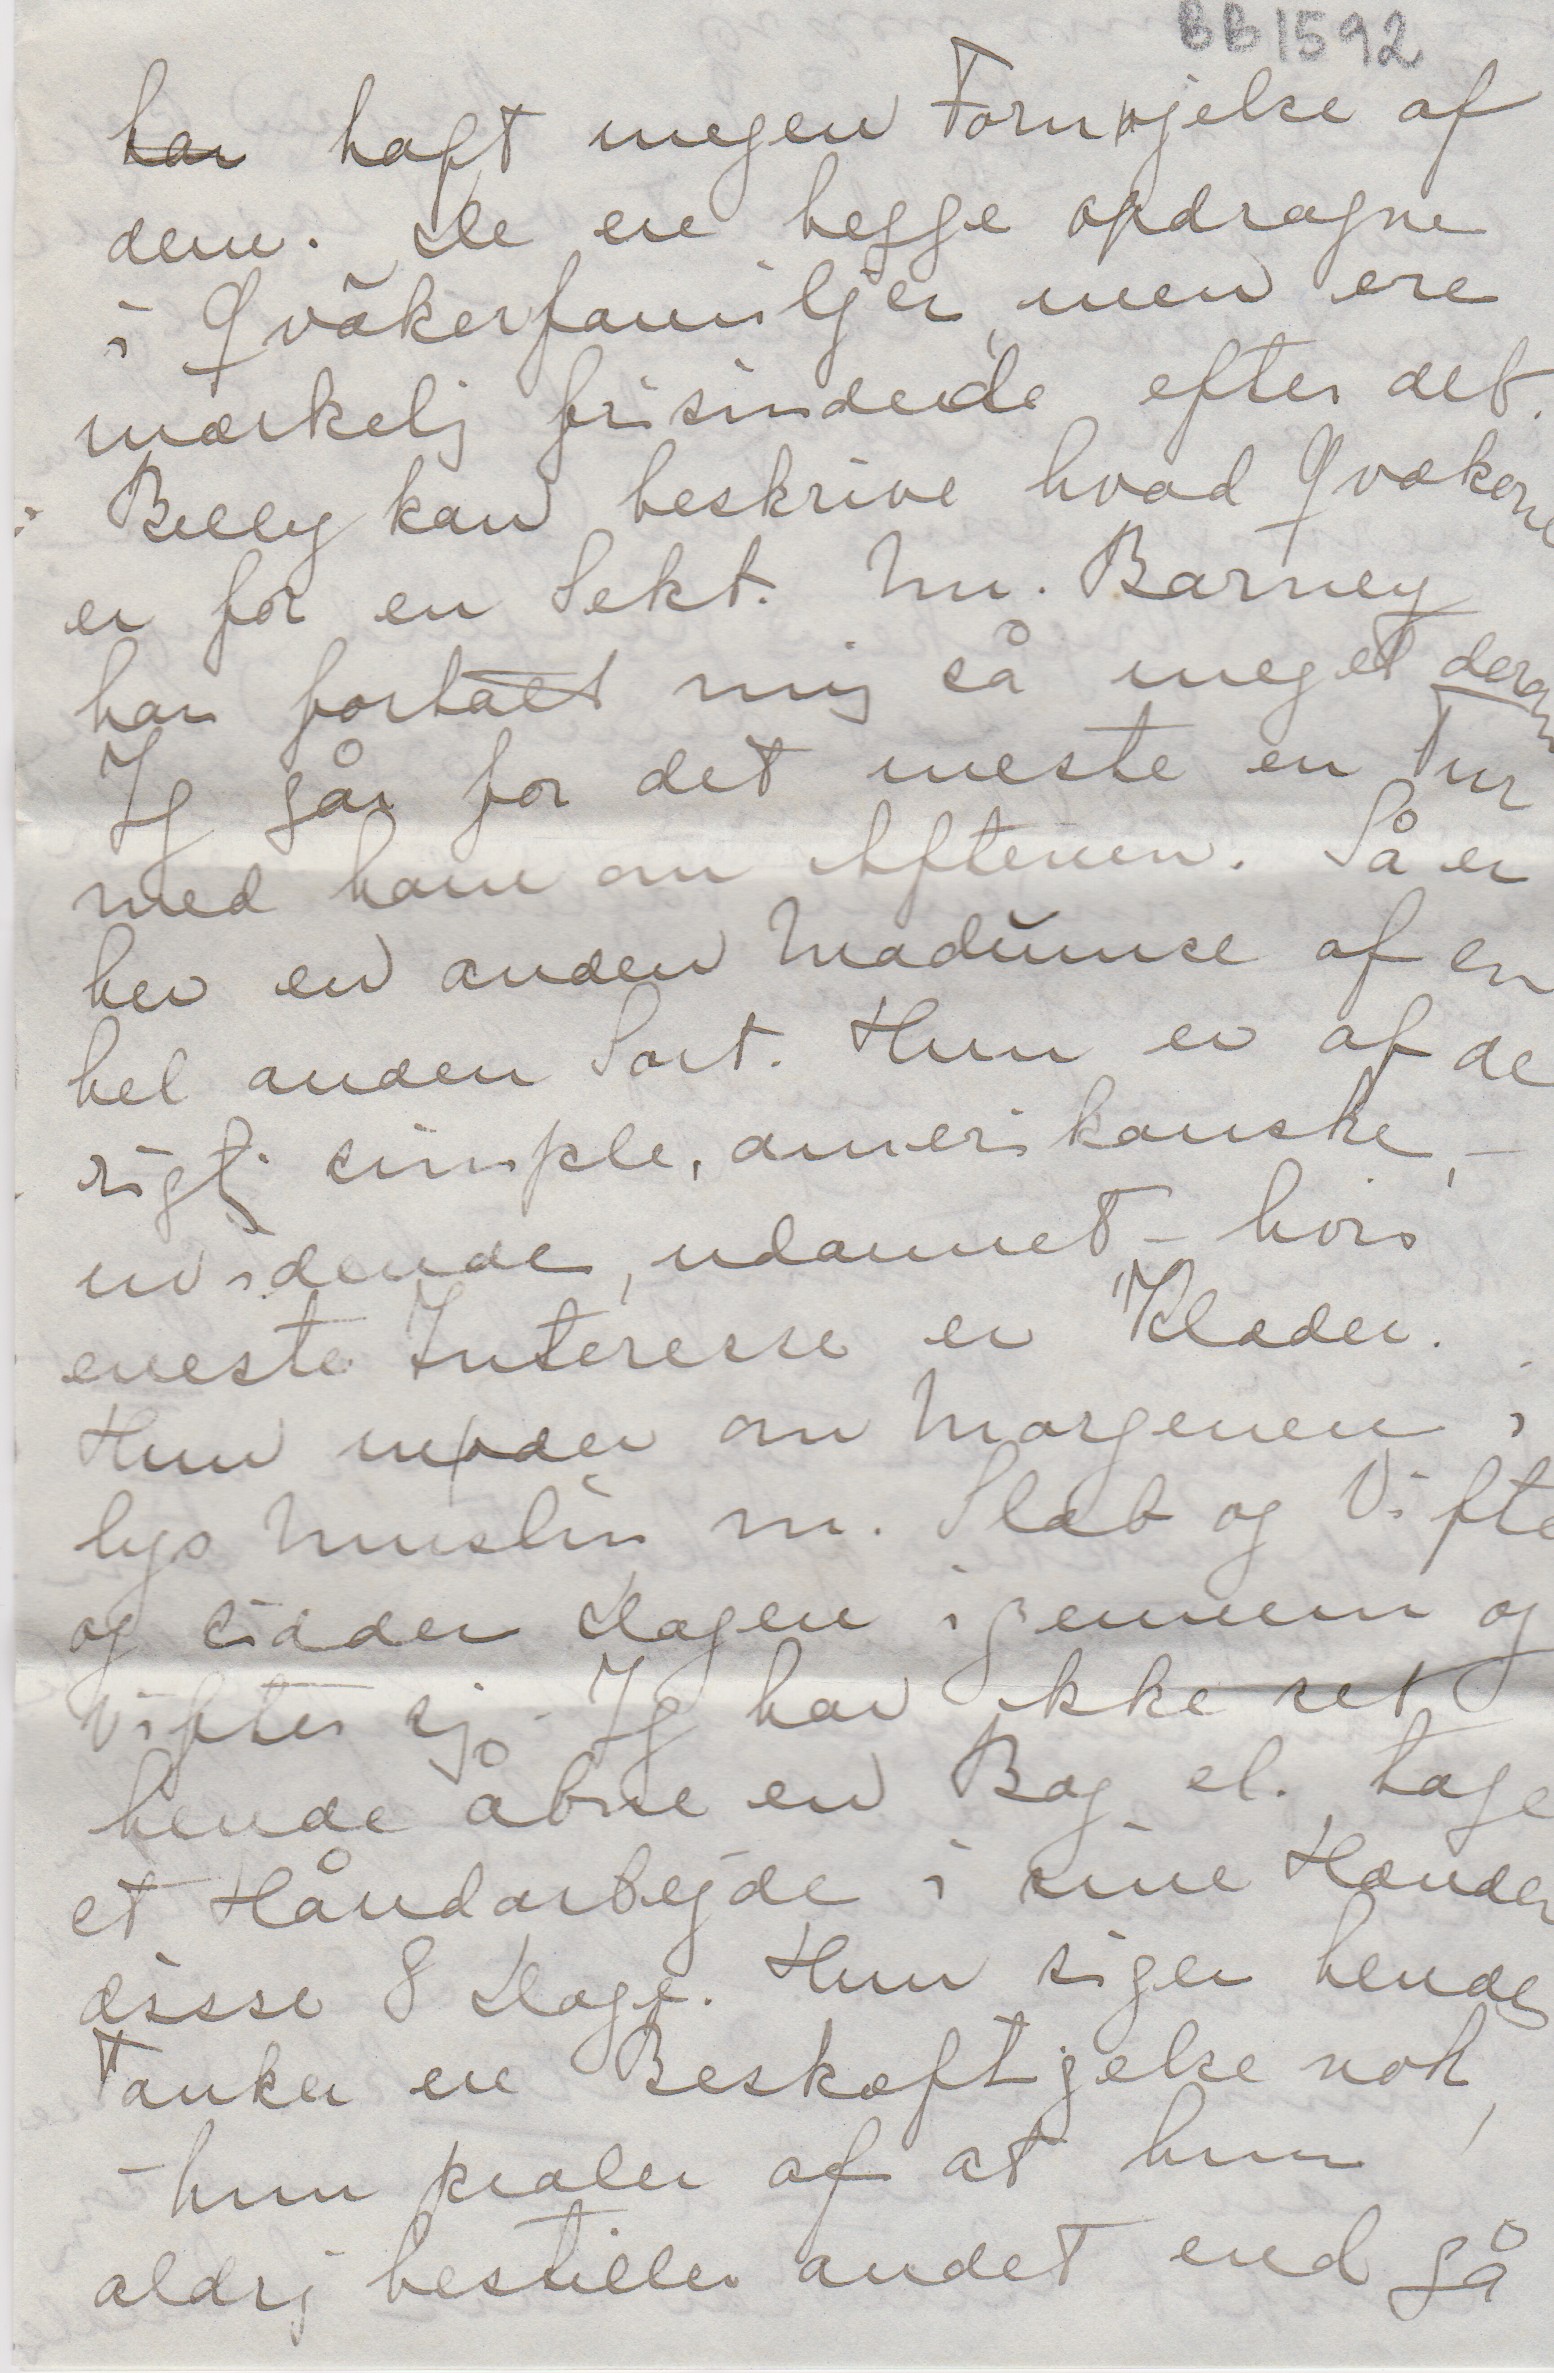 BB1592
har haft megen Fornøjelse af
dem. De ere begge opdragne
i Qvækerfamiljer, men ere
mærkelig frisindede efter det.
Billy kan beskrive hvad Qvækerne
er for en Sekt. Mr. Barney
har fortalt mig så meget derom
Jeg går for det meste en Tur
med ham om Aftenen. Så er
her en anden Madamme af en
hel anden Sort. Hun er af de
rigtig simple, amerikanske, –
uvidende, udannet – hvis
eneste Interesse er Klæder.
Hun møder om Morgenen i
lys Muslin m. Slæb og Vifte
og sidder Dagen igennem og
vifter sig. Jeg har ikke set
hende åbne en Bog el. tage
et Håndarbejde i sine Hænder
disse 8 Dage. Hun siger hendes
Tanker ere Beskæftigelse nok,
– hun praler af at hun
aldrig bestiller andet end gå